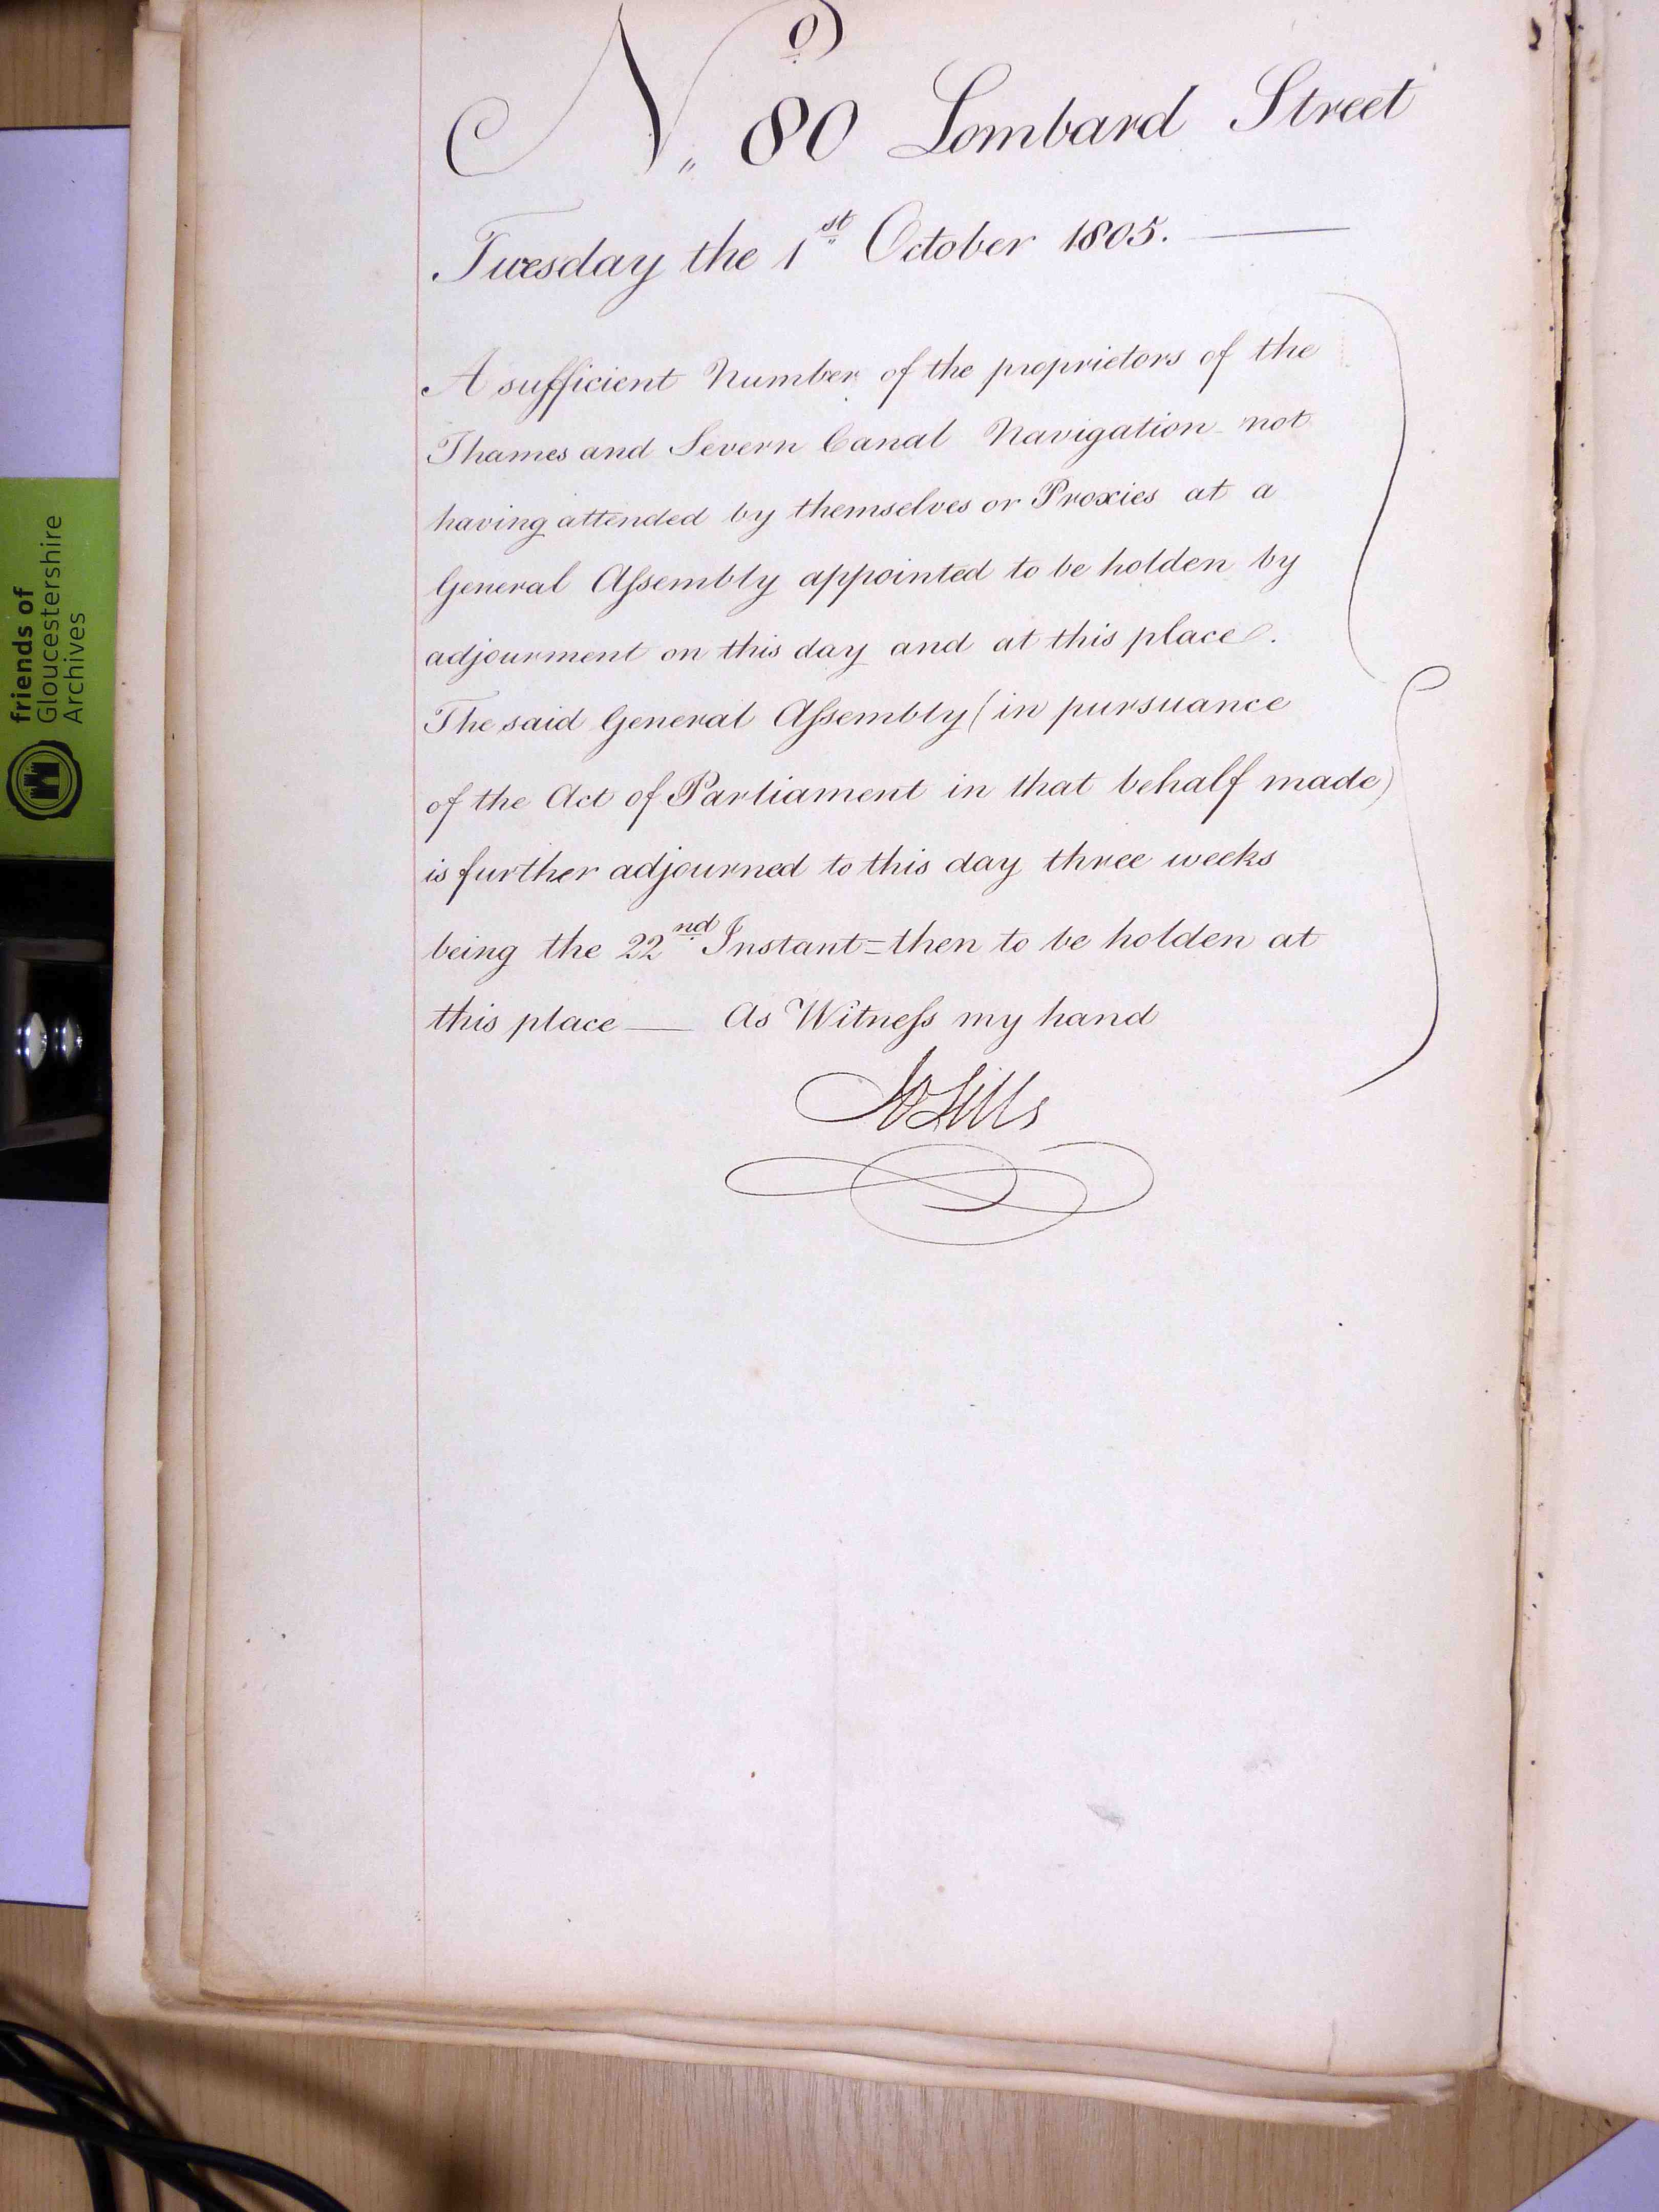 No. 80 Lombard Street
Tuesday the 1st October 1805.
A sufficient Number of the proprietors of the
Thames and Severn Canal Navigation not
having attended by themselves or Proxies at a
General Assembly appointed to be holden by
adjourment on this day and at this place.
The said General Assembly (in pursuance
of the Act of Parliament in that behalf made)
is further adjourned to this day three weeks
being the 22nd Instant = then to be holden at
this place — As Witness my hand
friends of
Gloucestershire
Archives